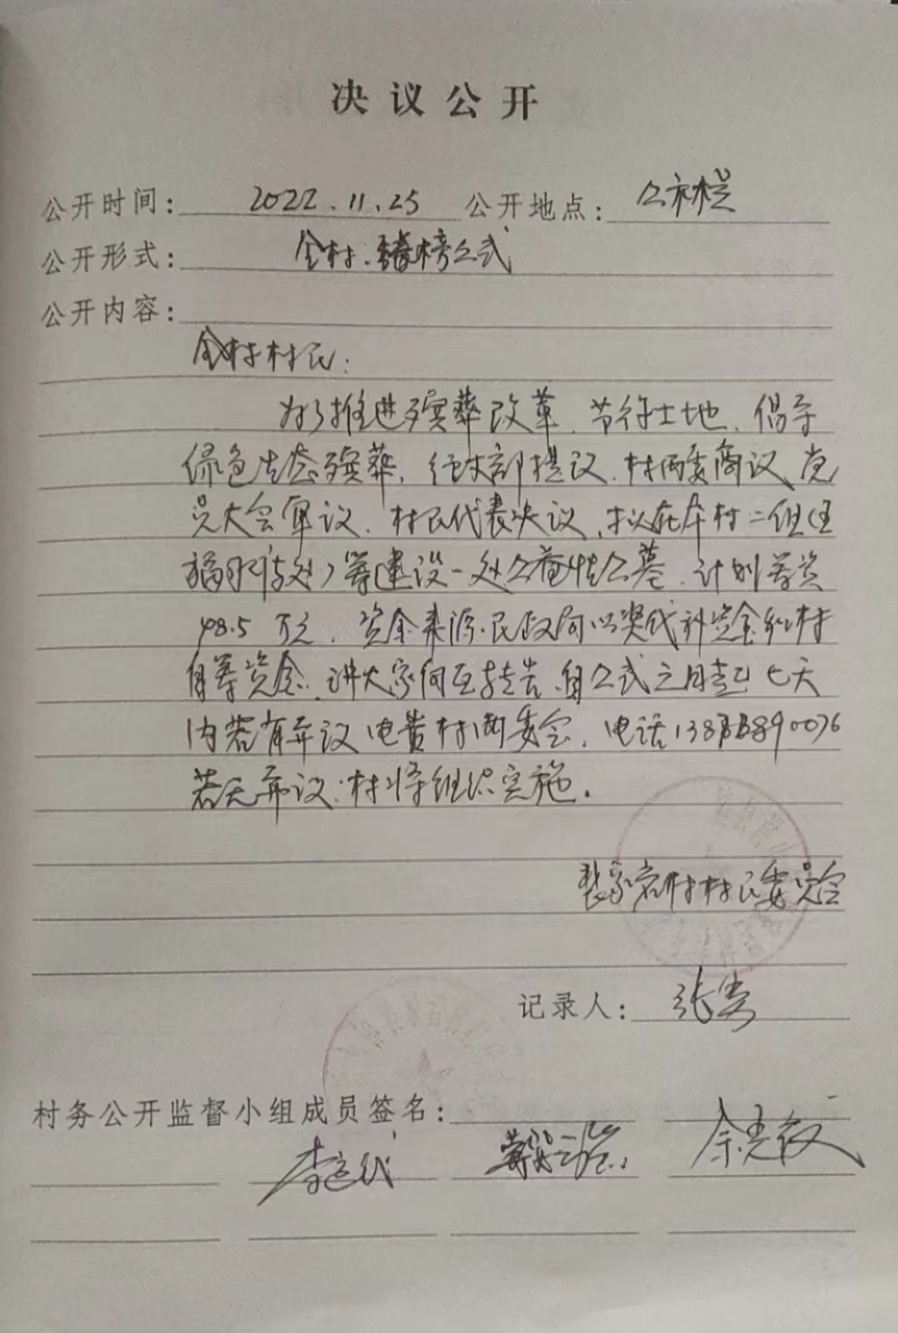 决议公开
公开时间: 2022.11.25 公开地点: 公示栏
公开形式: 全村、榜公式
公开内容:
全村村民:
为了推进殡葬改革、节约土地、倡导
绿色生态殡葬,经支部提议、村两委商议、党
员大会审议、村民代表决议,拟在本村二组(
处)筹建设一处公益性公墓,计划筹资
48.5万元,资金来源:民政局以奖代补资金和村
自筹资金,请大家向互转告,自公式之日起七天
内若有弃议电贵村两委会,电话
若无弃议,村将组织实施。
村村民委员会
记录人: 张
村务公开监督小组成员签名:
李
余